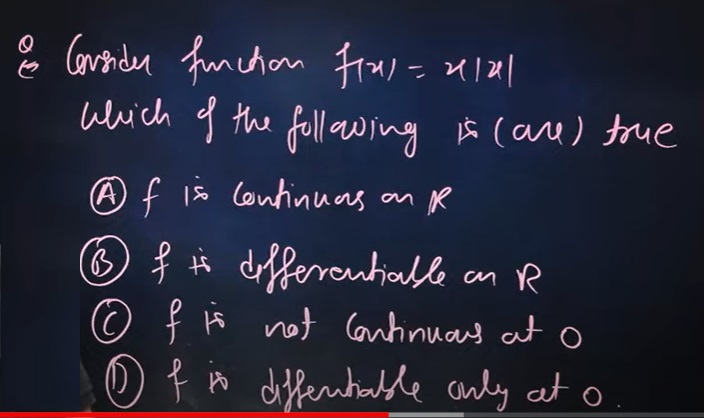 Q Consider function f(x) = x|x|
Which of the following is (are) true
(A) f is continuous on R
(B) f is differentiable on R
(C) f is not continuous at 0
(D) f is differentiable only at 0.